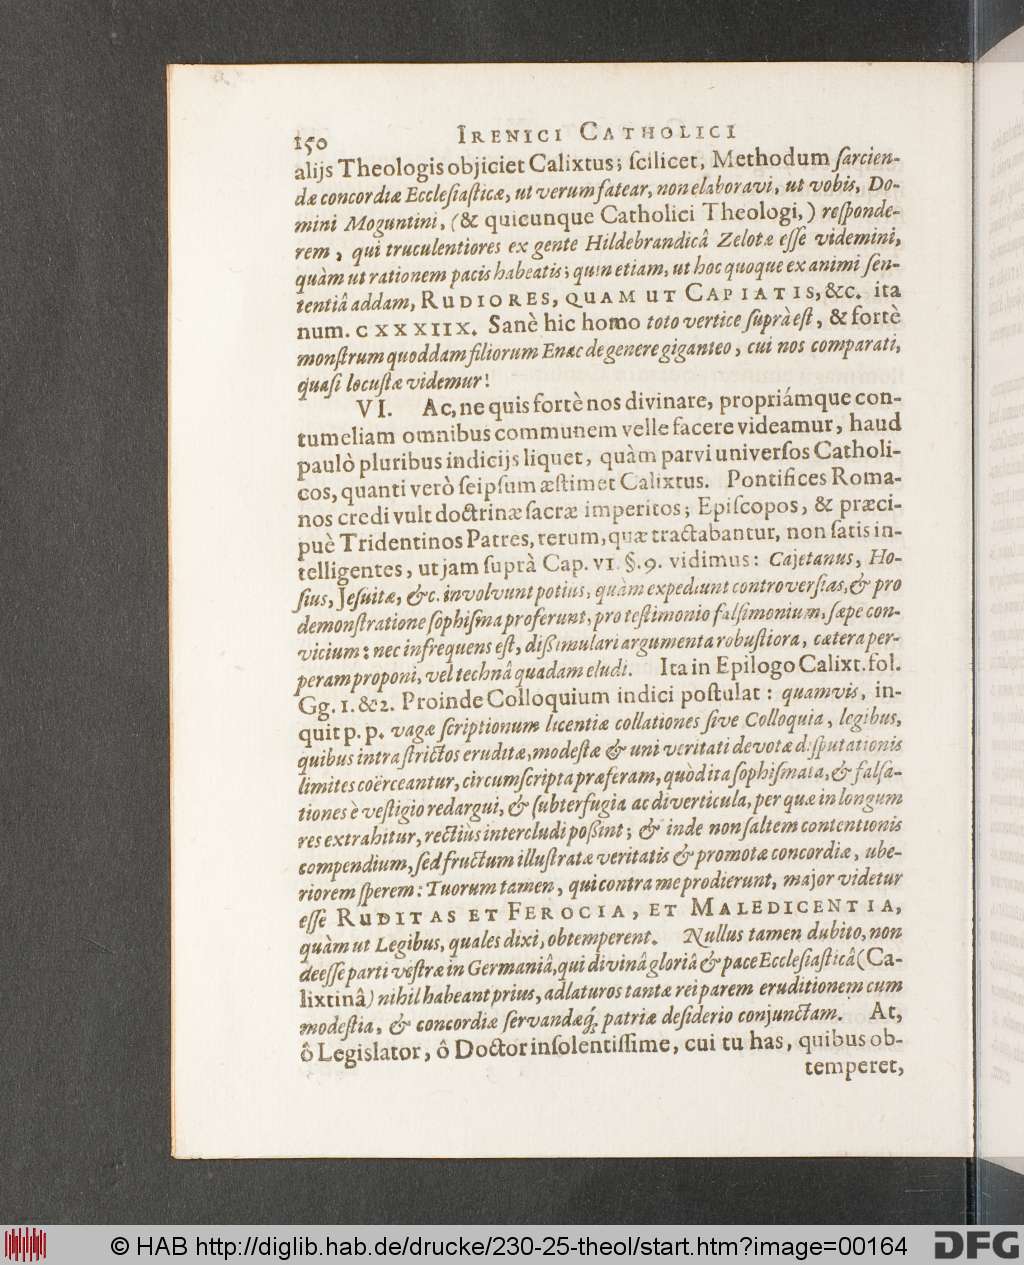 150 IRENICI CATHOLICI
alijs Theologis objiciet Calixtus; ſcilicet, Methodum ſarcien-
dæ concordiæ Eccleſiaſticæ, ut verum fatear, non elaboravi, ut vobis, Do-
mini Moguntini, (& quicunque Catholici Theologi,) reſponde-
rem, qui truculentiores ex gente Hildebrandicâ Zelotæ eſſe videmini,
quàm ut rationem pacis habeatis; quin etiam, ut hoc quoque ex animi ſen-
tentiâ addam, RUDIORES, QUAM UT CAPIATIS, &c. ita
num. CXXXIIX. Sanè hic homo toto vertice ſuprà eſt, & fortè
monſtrum quoddam filiorum Enac de genere giganteo, cui nos comparati,
quaſi locuſtæ videmur!
VI. Ac, ne quis fortè nos divinare, propriámque con-
tumeliam omnibus communem velle facere videamur, haud
paulò pluribus indicijs liquet, quàm parvi univerſos Catholi-
cos, quanti verò ſeipſum æſtimet Calixtus. Pontifices Roma-
nos credi vult doctrinæ ſacræ imperitos; Epiſcopos, & præci-
puè Tridentinos Patres, rerum, quæ tractabantur, non ſatis in-
telligentes, ut jam ſuprà Cap. VI. §. 9. vidimus: Cajetanus, Ho-
ſius, Jeſuitæ, &c. involvunt potius, quàm expediunt controverſias, & pro
demonſtratione ſophiſma proferunt, pro teſtimonio falſimonium, ſæpe con-
vicium: nec infrequens eſt, diſſimulari argumenta robuſtiora, cætera per-
peram proponi, vel technâ quadam eludi. Ita in Epilogo Calixt. fol.
Gg. 1. &2. Proinde Colloquium indici poſtulat: quamvis, in-
quit p. p. vagæ ſcriptionum licentiæ collationes ſive Colloquia, legibus,
quibus intra ſtrictos eruditæ, modeſtæ & uni veritati devotæ diſputationis
limites coërceantur, circumſcripta præferam, quòd ita ſophiſmata, & falſa-
tiones è veſtigio redargui, & ſubterfugia ac diverticula, per quæ in longum
res extrahitur, rectiùs intercludi poſſint; & inde non ſaltem contentionis
compendium, ſed fructum illuſtratæ veritatis & promotæ concordiæ, ube-
riorem ſperem: Tuorum tamen, qui contra me prodierunt, major videtur
eſſe RUDITAS ET FEROCIA, ET MALEDICENTIA,
quàm ut Legibus, quales dixi, obtemperent. Nullus tamen dubito, non
deeſſe parti veſtræ in Germaniâ, qui divinâ gloriâ & pace Eccleſiaſticâ (Ca-
lixtinâ) nihil habeant prius, adlaturos tantæ rei parem eruditionem cum
modeſtia, & concordiæ ſervandæq́; patriæ deſiderio conjunctam. At,
ô Legislator, ô Doctor inſolentiſſime, cui tu has, quibus ob-
temperet,
© HAB http://diglib.hab.de/drucke/230-25-theol/start.htm?image=00164 DFG